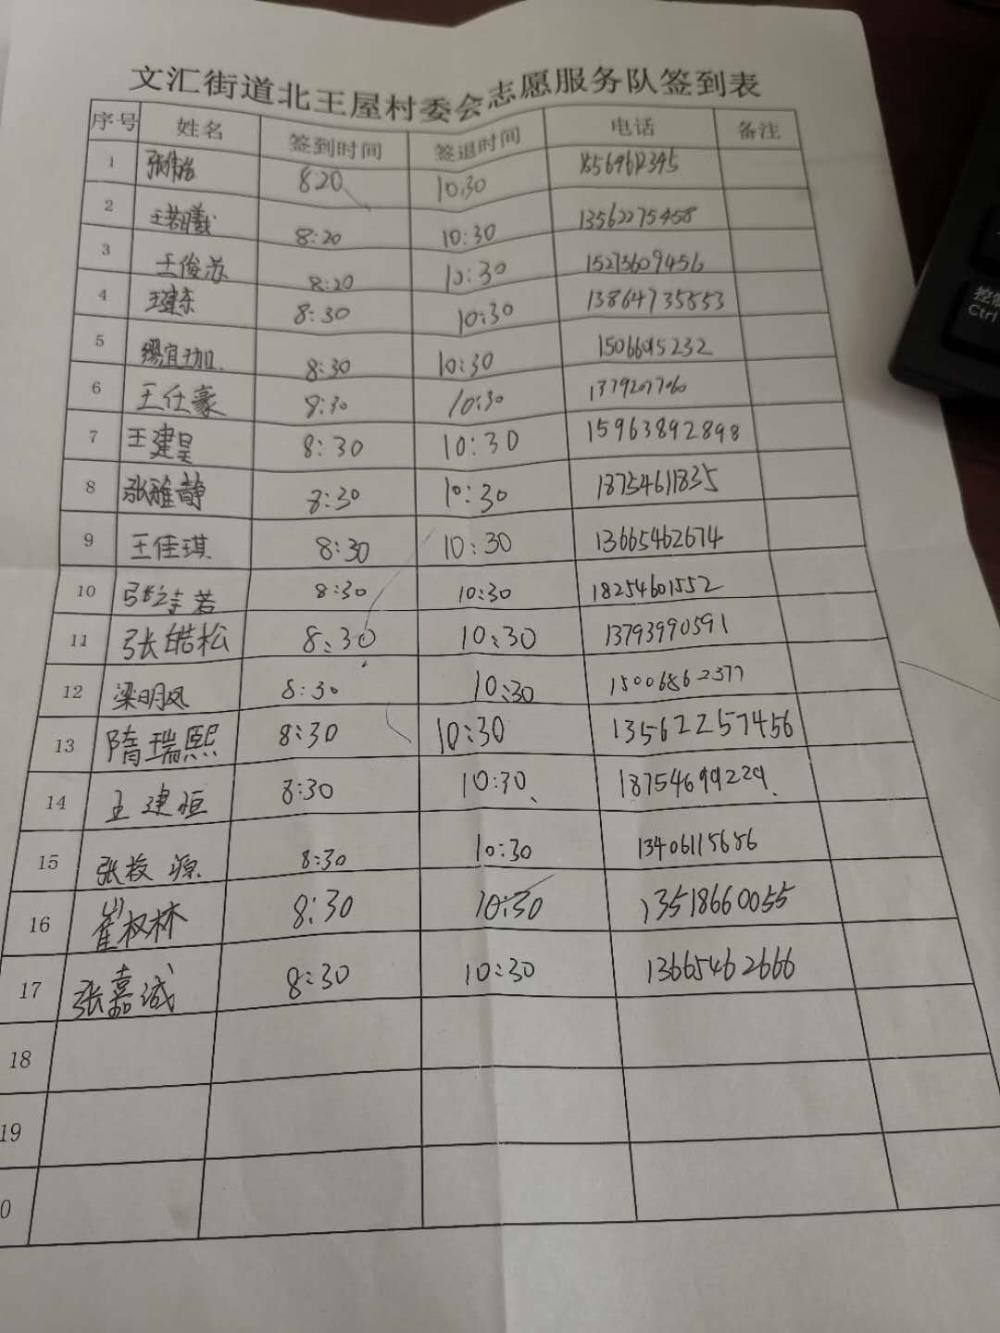 文汇街道北王屋村委会志愿服务队签到表
序号 姓名 签到时间 签退时间 电话 备注
1 8:20 10:30
2 王若曦 8:20 10:30 13562275458
3 王俊苏 8:20 10:30 15275609456
4 王建东 8:30 10:30 13864735553
5 8:30 10:30
6 王仕豪 8:30 10:30
7 王建昊 8:30 10:30 15963892898
8 张雅静 8:30 10:30 18754611835
9 王佳琪 8:30 10:30 13665462674
10 8:30 10:30 18254601552
11 张皓松 8:30 10:30 13793990591
12 梁明凤 8:30 10:30 15006862377
13 隋瑞熙 8:30 10:30 13562257456
14 王建恒 8:30 10:30 18754699229
15 8:30 10:30 13406115656
16 崔权林 8:30 10:30 13518660055
17 张嘉诚 8:30 10:30 13665462666
18
19
0
控制
Ctrl